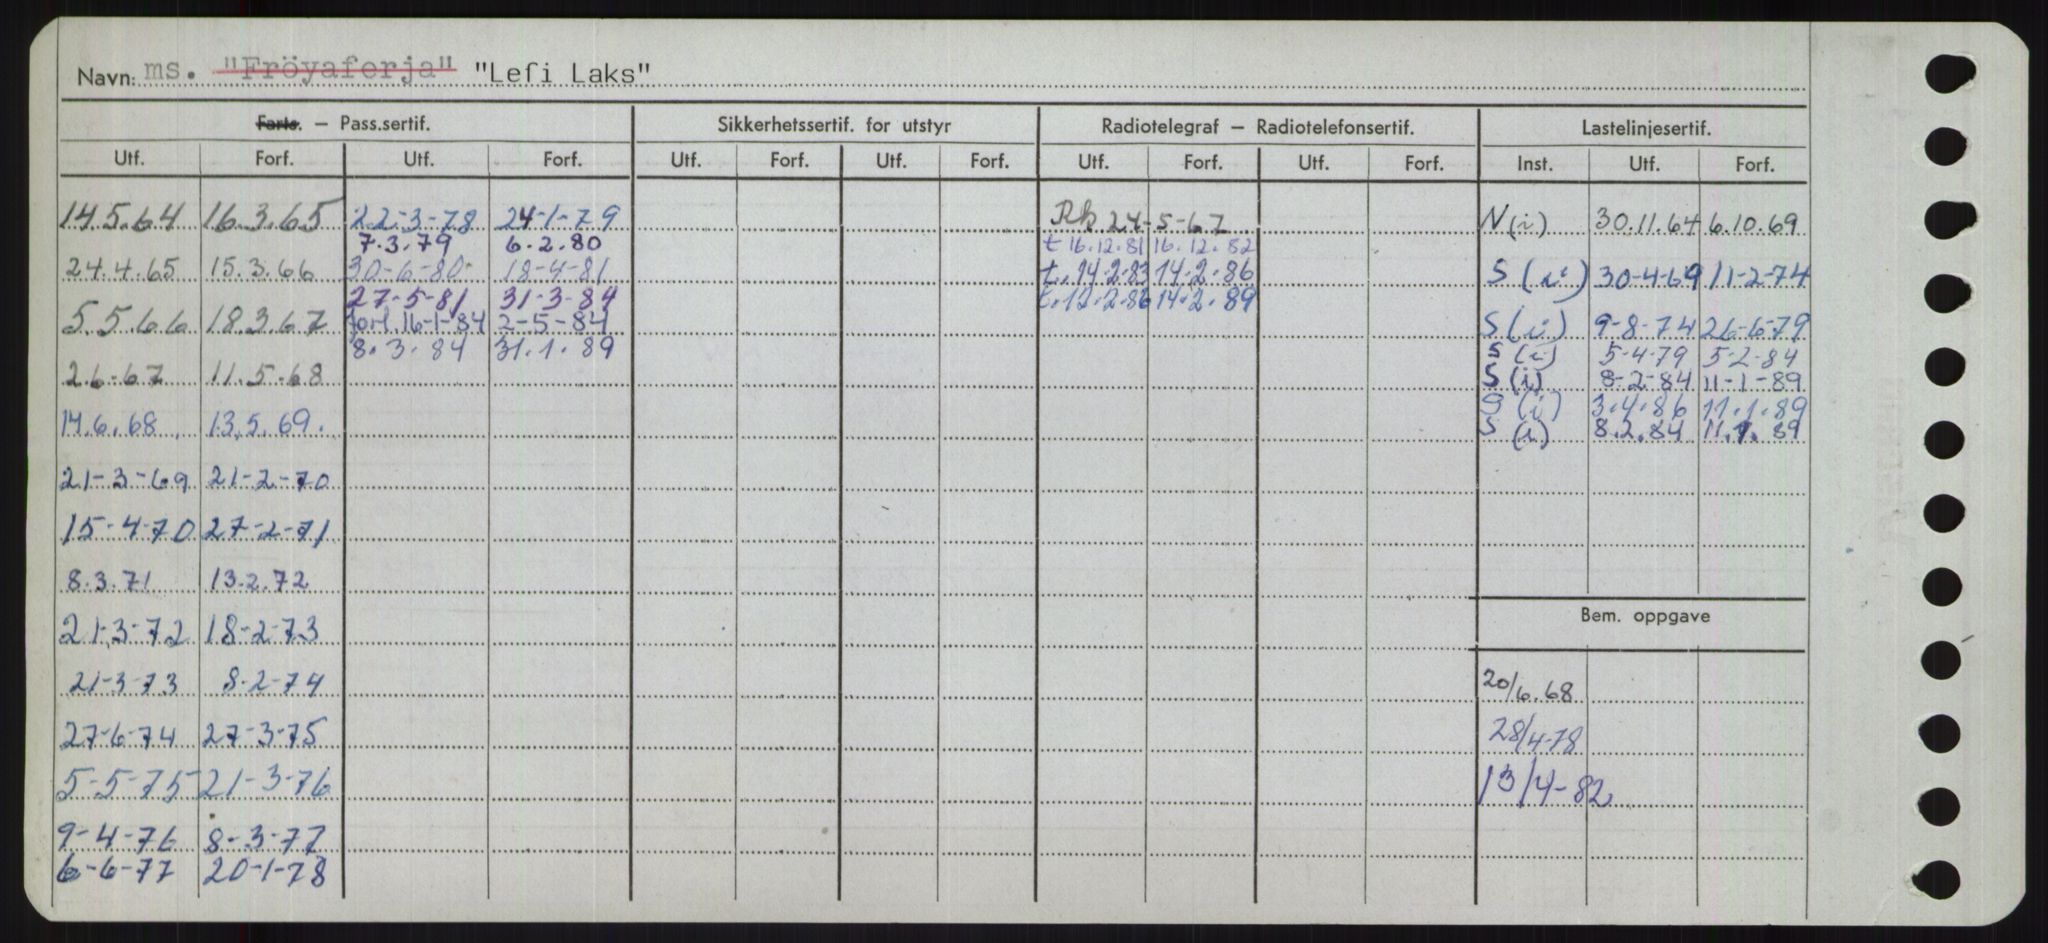 Navn: ms. "Fröyaferja" "Lefi Laks"
Farts. – Pass.sertif. Sikkerhetssertif. for utstyr Radiotelegraf – Radiotelefonsertif. Lastelinjesertif.
Utf. Forf. Utf. Forf. Utf. Forf. Utf. Forf. Utf. Forf. Utf. Forf. Inst. Utf. Forf.
14.5.64 16.3.65 22-3-78 24-1-79 Rk 24-5-67 N(i) 30.11.64 6.10.69
7.3.79 6.2.80 t 16.12.81 16.12.82
24.4.65 15.3.66 30-6-80 18-4-81 t.14-2-83 14-2-86 S(i) 30-4-69 11-2-74
27-5-81 31-3-84 t.12-2-86 14-2-89
5.5.66 18.3.67 forl 16-1-84 2-5-84 S(i) 9-8-74 26-6-79
8.3.84 31.1.89 S(i) 5-4-79 5-2-84
2.6.67 11.5.68 S(i) 8-2-84 11-1-89
14.6.68 13.5.69. S(i) 3.4.86 11.1.89
S(i) 8.2.84 11.1.89
21-3-69 21-2-70
15-4-70 27-2-71
8.3.71 13.2.72
Bem. oppgave
21-3-72 18-2-73
21-3-73 8-2-74 20/6.68
27-6-74 27-3-75 28/4-78
5-5-75 21-3-76 13/4-82
9-4-76 8-3-77
6-6-77 20-1-78